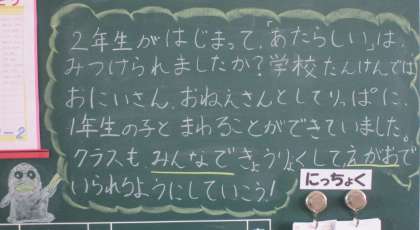 2年生がはじまって、「あたらしい」は、
みつけられましたか?学校たんけんでは
おにいさん、おねえさんとしてりっぱに、
1年生の子とまわることができていました。
クラスもみんなできょうりょくして、えがおで
いられるようにしていこう!
にっちょく